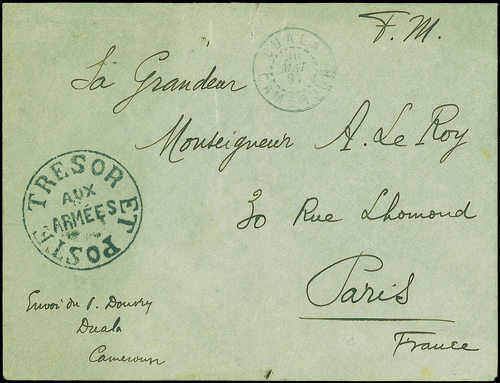 F. M.
DUALA
MAI
CAMEROUN
Sa Grandeur
Monseigneur A. Le Roy
TRESOR ET POSTE
AUX
ARMÉES
30 Rue Lhomond
Paris
France
Envoi du P. Douvry
Duala
Cameroun